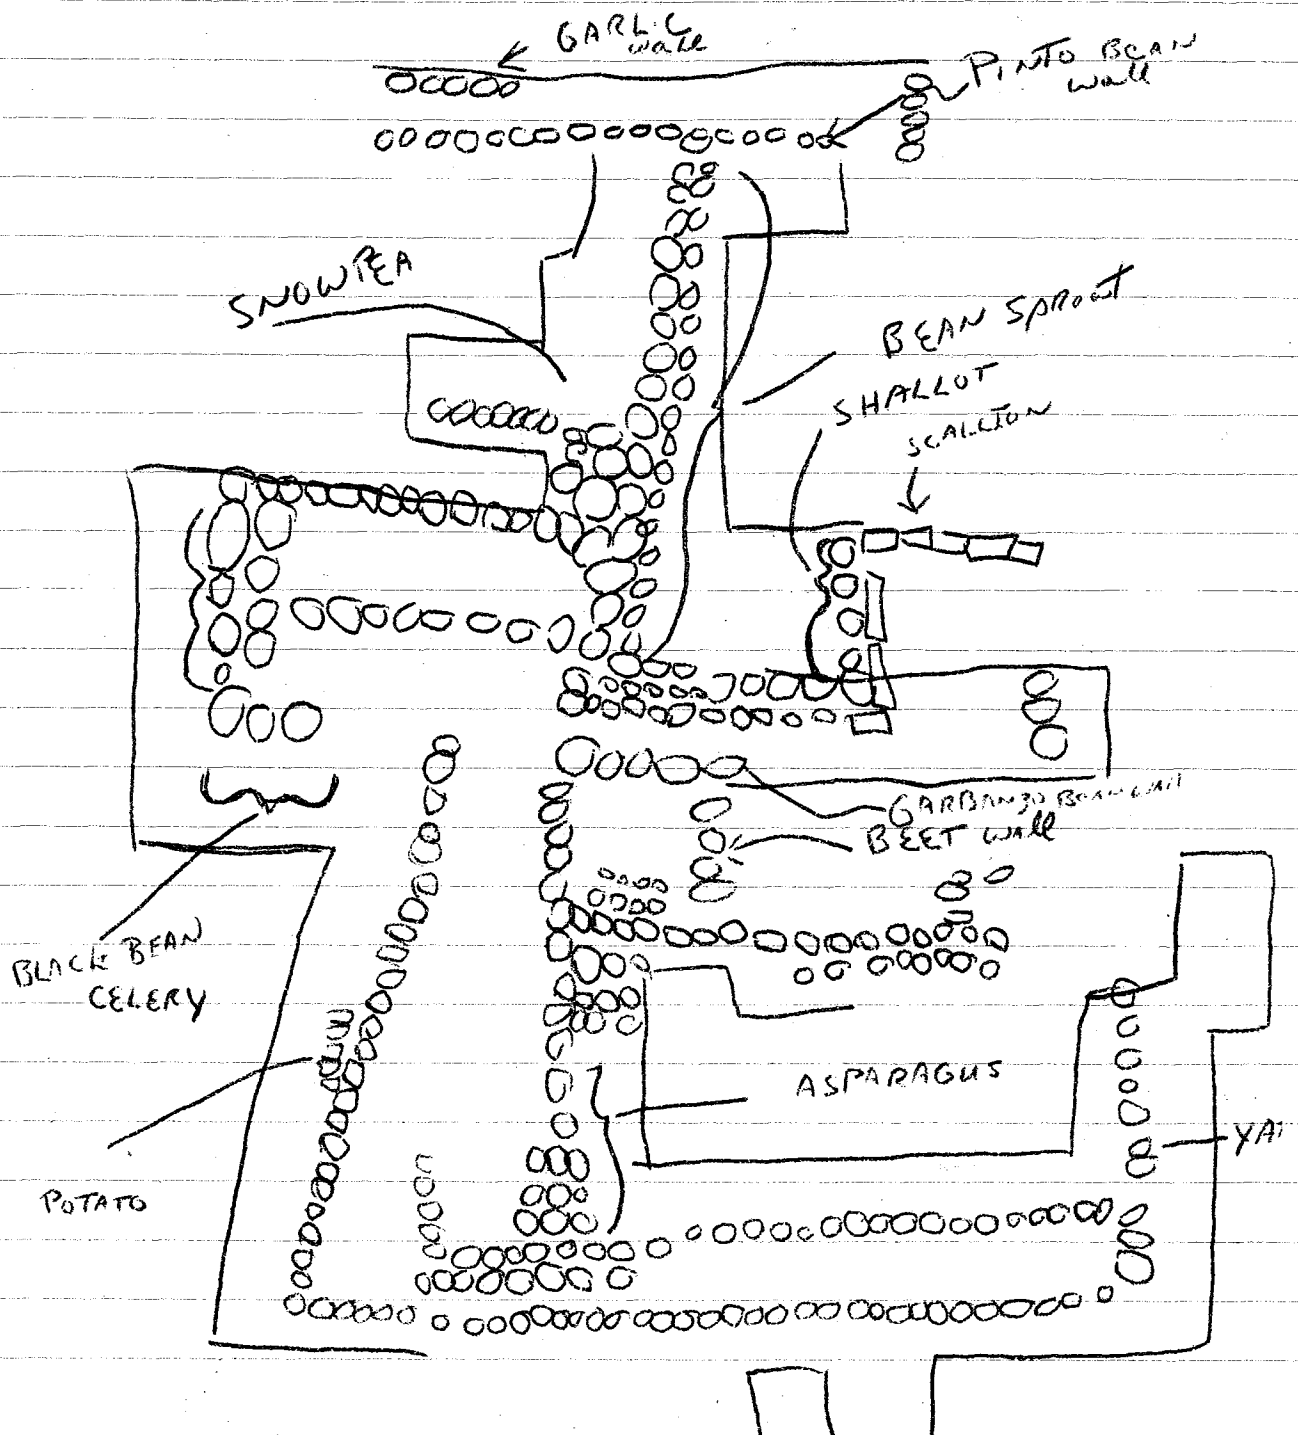 GARLIC
wall
PINTO BEAN
wall
SNOWPEA
BEAN SPROUT
SHALLOT
SCALLION
GARBANZO BEAN wall
BEET wall
BLACK BEAN
CELERY
ASPARAGUS
YA
POTATO